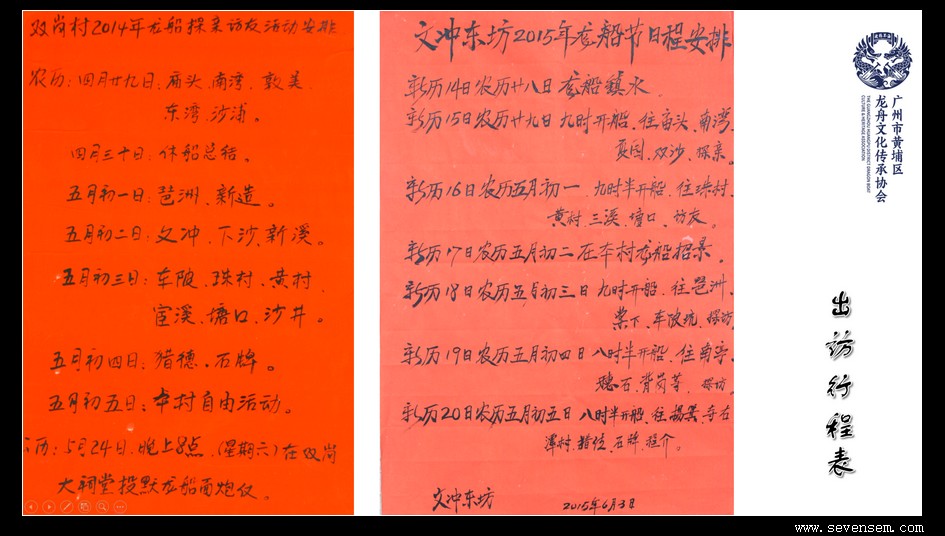 双岗村2014年龙船探亲访友活动安排
农历:四月廿九日:庙头、南湾、敦美、
东湾、沙浦。
四月三十日:休船总结。
五月初一日:琶洲、新造。
五月初二日:文冲、下沙、新溪。
五月初三日:车陂、珠村、黄村、
宦溪、塘口、沙井。
五月初四日:猎德、石牌。
五月初五日:本村自由活动。
历:5月24日、晚上8点(星期六)在双岗
大祠堂投默龙船面炮仪。
文冲东坊2015年龙船节日程安排
新历14日农历廿八日龙船镇水.
新历15日农历廿九日九时开船、往庙头、南湾、
夏园、双沙、探亲。
新历16日农历五月初一、九时半开船、往珠村、
黄村、三溪、塘口、访友。
新历17日农历五月初二在本村龙船招景.
新历18日农历五月初三日九时开船、往琶洲、
棠下、车陂坑、探访
新历19日农历五月初四日八时半开船、往南亭、
穗石、背员岑、探访.
新历20日农历五月初五日八时半开船、往杨箕、寺右
潭村、猎德、石牌、程介。
文冲东坊
2015年6月3日
广州市黄埔区
龙舟文化传承协会
THE GUANGZHOU HUANGPU DISTRICT DRAGON BOAT
CULTURE & HERITAGE ASSOCIATION
出访行程表
www.sevensem.com